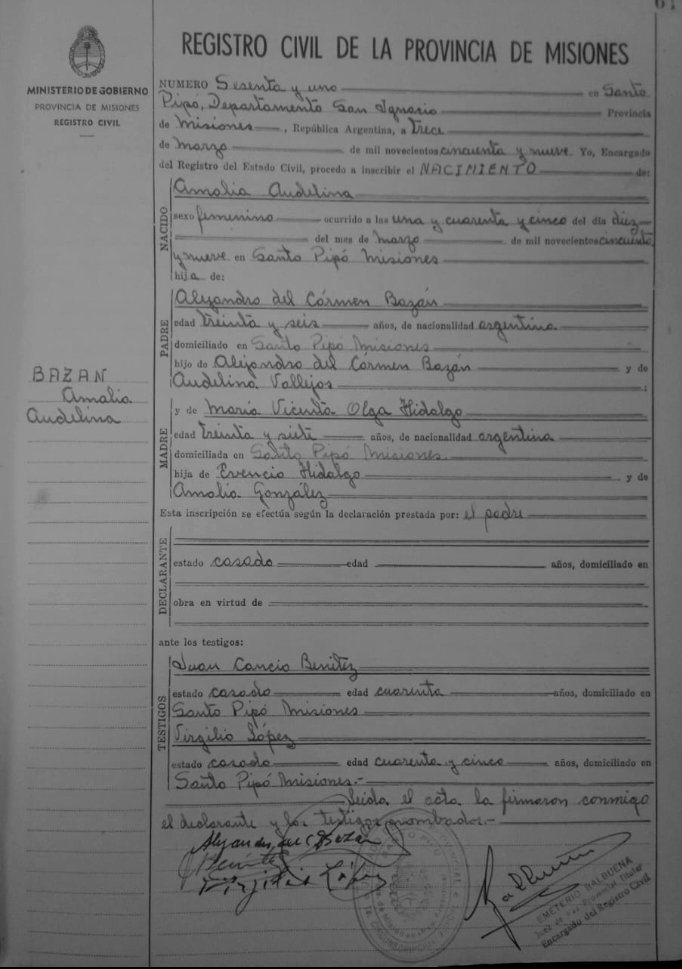 61
REGISTRO CIVIL DE LA PROVINCIA DE MISIONES
MINISTERIO DE GOBIERNO
PROVINCIA DE MISIONES
REGISTRO CIVIL
NUMERO Sesenta y uno en Santo
Pipó, Departamento San Ignacio Provincia
de Misiones, República Argentina, a trece
de Marzo de mil novecientos cincuenta y nueve. Yo, Encargado
del Registro del Estado Civil, procedo a inscribir el NACIMIENTO de:
NACIDO
Amalia Audelina
sexo femenino ocurrido a las una y cuarenta y cinco del día diez
del mes de Marzo de mil novecientos cincuenta
y nueve en Santo Pipó Misiones
hija de:
PADRE
Alejandro del Cármen Bazán
edad treinta y seis años, de nacionalidad argentina
domiciliado en Santo Pipó Misiones
hijo de Alejandro del Cármen Bazán y de
Audelina Vallejos :
BAZAN
Amalia
Audelina
MADRE
y de María Vicenta Olga Hidalgo
edad treinta y siete años, de nacionalidad argentina
domiciliada en Santo Pipó Misiones.
hija de Evencio Hidalgo y de
Amalia González
Esta inscripción se efectúa según la declaración prestada por: el padre
DECLARANTE
estado casado edad años, domiciliado en
obra en virtud de
ante los testigos:
TESTIGOS
Juan Cancio Benítez
estado casado edad cuarenta años, domiciliado en
Santo Pipó Misiones
Virgilio López
estado casado edad cuarenta y cinco años, domiciliado en
Santo Pipó Misiones.-
Leída el acta la firmaron conmigo
el declarante y los testigos nombrados.-
Alejandro del C Bazán
Benítez
Virgilio López
EMETERIO BALBUENA
Juez de Paz Titular
Encargado del Registro Civil